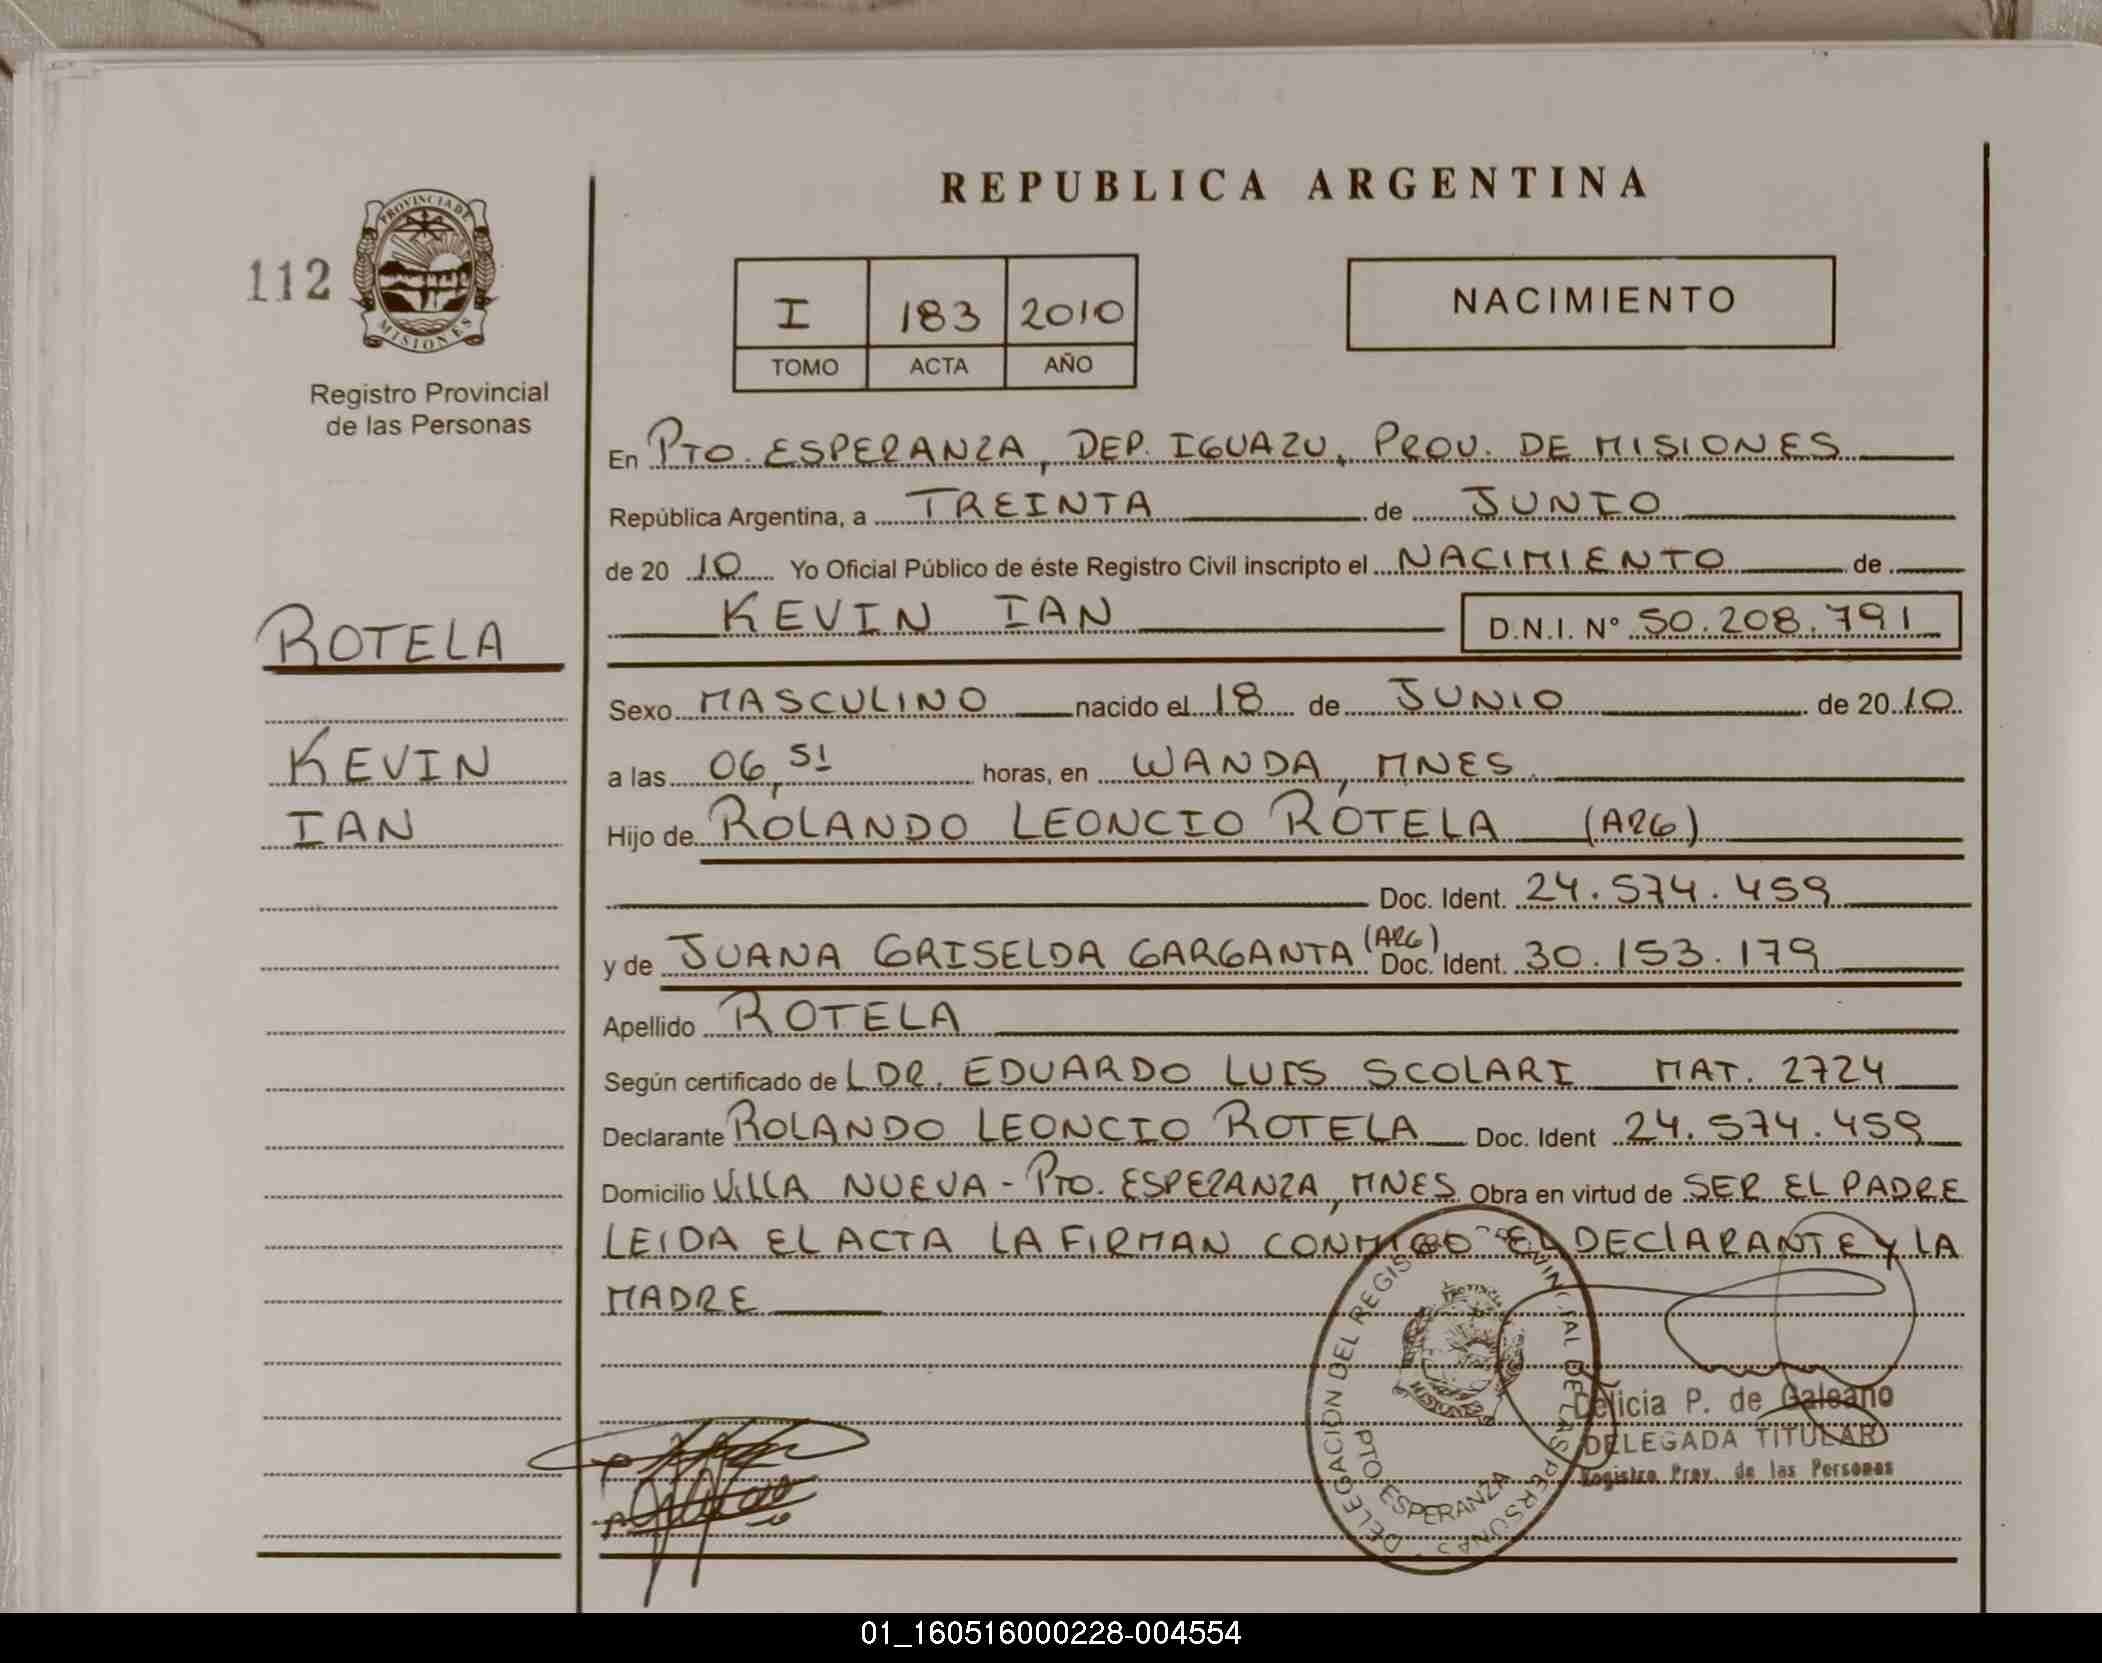 REPUBLICA ARGENTINA
112
PROVINCIA DE
MISIONES
Registro Provincial
de las Personas
I 183 2010
TOMO ACTA AÑO
NACIMIENTO
En PTO. ESPERANZA, DEP. IGUAZU, PROV. DE MISIONES
República Argentina, a TREINTA de JUNIO
de 20 10 Yo Oficial Público de éste Registro Civil inscripto el NACIMIENTO de
KEVIN IAN D.N.I. N° 50.208.791
ROTELA
KEVIN
IAN
Sexo MASCULINO nacido el 18 de JUNIO de 20 10
a las 06,51 horas, en WANDA, MNES.
Hijo de ROLANDO LEONCIO ROTELA (ARG)
Doc. Ident. 24.574.459
y de JUANA GRISELDA GARGANTA (ARG) Doc. Ident. 30.153.179
Apellido ROTELA
Según certificado de LDR. EDUARDO LUIS SCOLARI MAT. 2724
Declarante ROLANDO LEONCIO ROTELA Doc. Ident 24.574.459
Domicilio VILLA NUEVA - PTO. ESPERANZA, MNES Obra en virtud de SER EL PADRE
LEIDA EL ACTA LA FIRMAN CONMIGO EL DECLARANTE Y LA
MADRE
DELEGACION DEL REGISTRO PROVINCIAL DE LAS PERSONAS
MISIONES
PTO ESPERANZA
Delicia P. de Galeano
DELEGADA TITULAR
Registro Prov. de las Personas
01_160516000228-004554